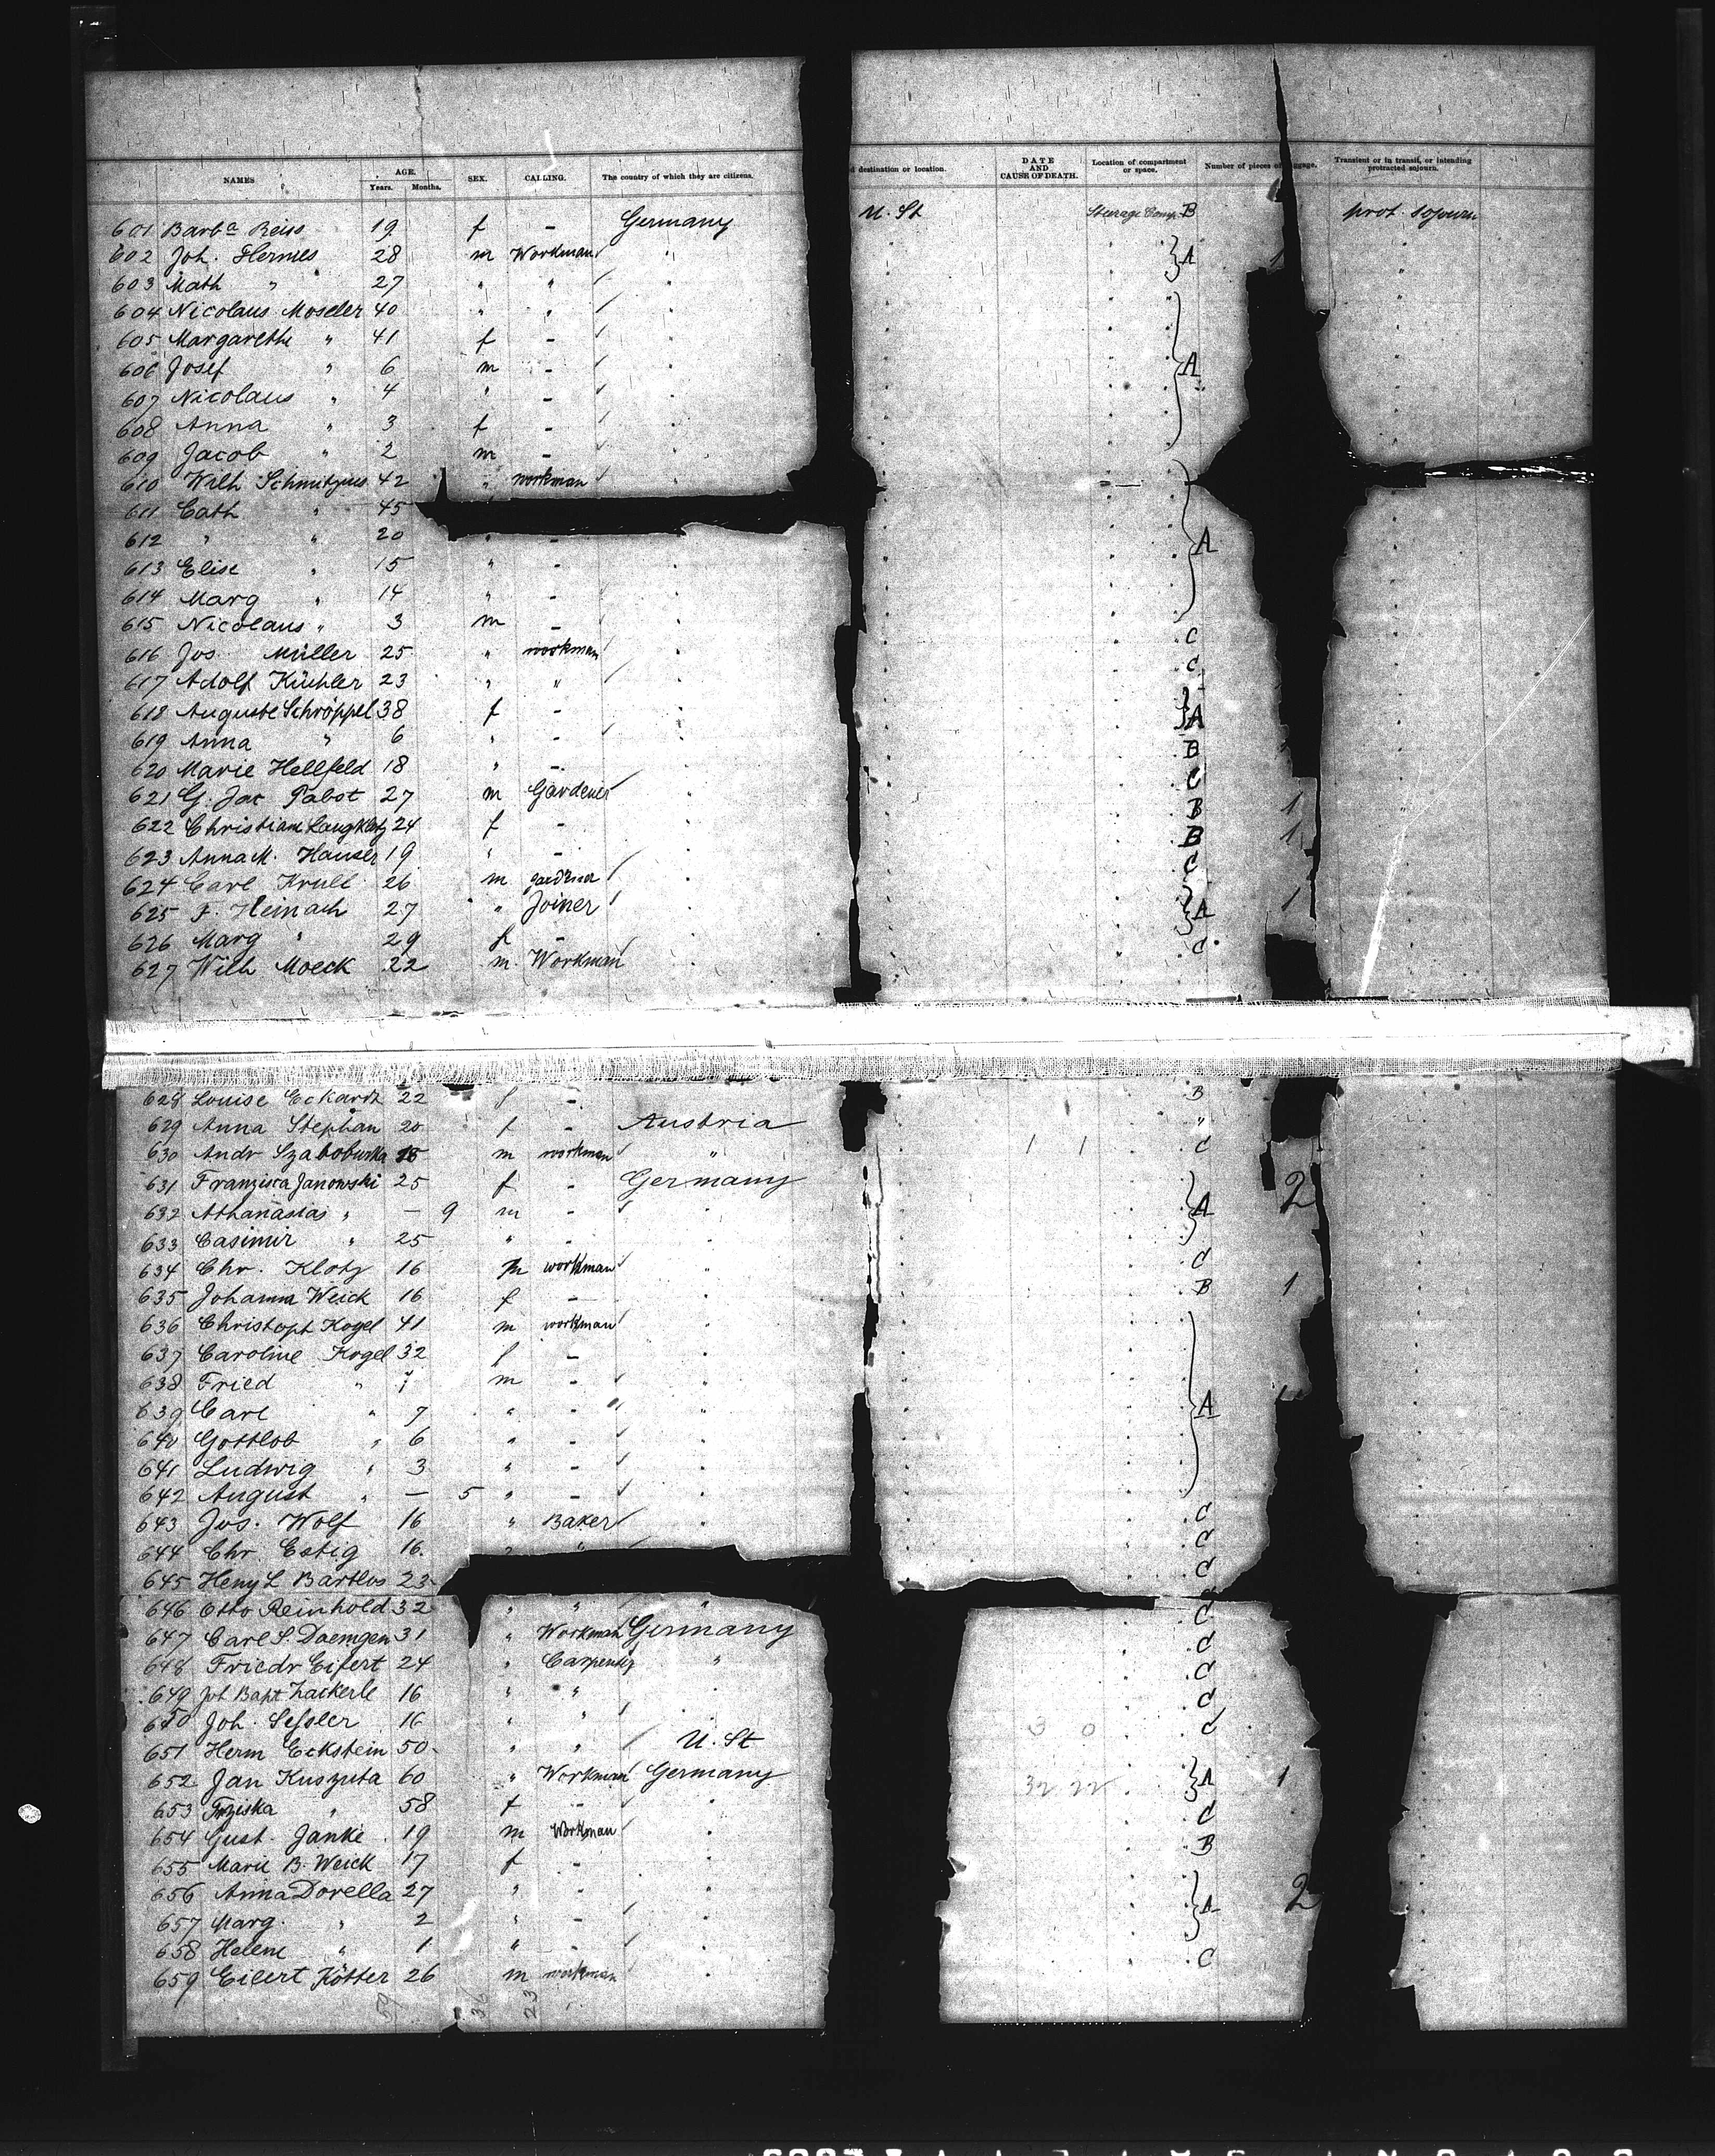 NAMES AGE. Years. Months. SEX. CALLING. The country of which they are citizens. d destination or location. DATE AND CAUSE OF DEATH. Location of compartment or space. Number of pieces of Transient or in transit, or intending protracted sojourn.
601 Barbª Reiss 19 f - Germany U. St Steerage Comp. B prot. sojourn
602 Joh. Hermes 28 m Workman " A 1
603 Math " 27 " " "
604 Nicolaus Moseler 40 " " "
605 Margarethe " 41 f - "
606 Josef " 6 m - " A
607 Nicolaus " 4 " - "
608 Anna " 3 f - "
609 Jacob " 2 m - "
610 Wilh Schmitzius 42 " workman "
611 Cath " 45
612 " " 20 " - A
613 Elise " 15 " - "
614 Marg " 14 " - "
615 Nicolaus " 3 m - "
616 Jos. Müller 25 " workman " C
617 Adolf Küchler 23 " " " C
618 Auguste Schröppel 38 f - " A
619 Anna " 6 " - "
620 Marie Hellfeld 18 " - " B
621 G. Jac Pabst 27 m Gardener " C
622 Christiane Langklotz 24 f - " B 1
623 Anna M. Hauser 19 " - " B 1
624 Carl Krull 26 m gardner " C
625 F. Heinach 27 " Joiner " A 1
626 Marg " 29 f - "
627 Wilh Moeck 22 m Workman " C
628 Louise Eckardt 22 f - B
629 Anna Stephan 20 f - Austria "
630 Andr Szaboburka m workman " 1 1 C
631 Franzisca Janowski 25 f - Germany
632 Athanasias " — 9 m - " A 2
633 Casimir " 25 " - "
634 Chr. Klotz 16 m workman " C
635 Johanna Weick 16 f - " B 1
636 Christoph Kogel 41 m workman "
637 Caroline Kogel 32 f - "
638 Fried " m - "
639 Carl " 7 " - " A
640 Gottlob " 6 " - "
641 Ludwig " 3 " - "
642 August " — 5 " - "
643 Jos. Wolf 16 " Baker " C
644 Chr. Estig 16. " C
645 Heny L Bartlos 23 C
646 Otto Reinhold 32 " " " C
647 Carl S. Daemgen 31 " Workman Germany C
648 Friedr Eifert 24 " Carpenter " C
649 Joh Bapt Zackerle 16 " " " C
650 Joh. Sessler 16 " " " C
651 Herm Eckstein 50 " " U. St 3 0 C
652 Jan Kuszuta 60 " Workman Germany 32 22 A 1
653 Frziska " 58 f - "
654 Gust. Janke 19 m Workman " C
655 Marie B. Weick 17 f - " B
656 Anna Dorella 27 " - "
657 Marg. " 2 " - " A 2
658 Helene " 1 " - "
659 Eilert Kötter 26 m workman " C
59 36 23